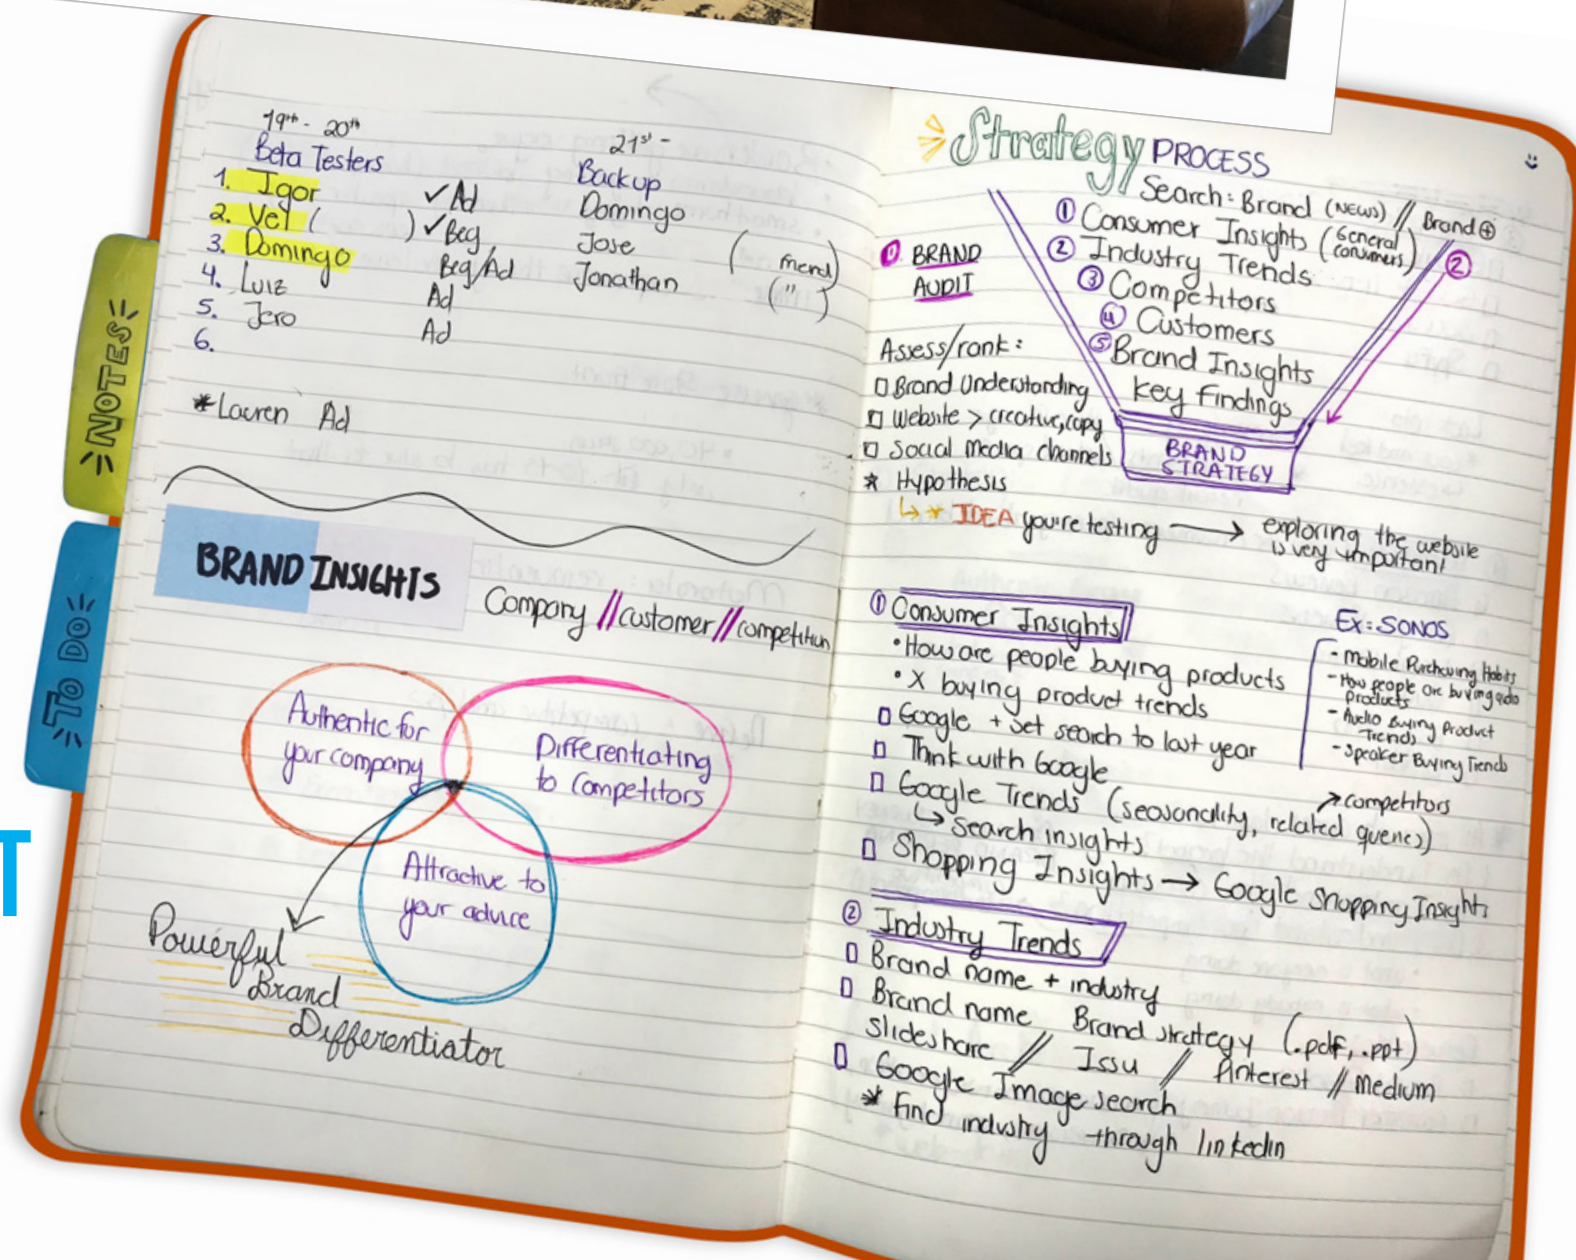 NOTES
TO DO
T
19th - 20th
Beta Testers
1. Igor ✓ Ad
2. Vel ( ) ✓ Beg
3. Domingo Beg/Ad
4. Luiz Ad
5. Jero Ad
6.
21st -
Backup
Domingo
Jose ( friend)
Jonathan ( " )
* Lauren Ad
BRAND INSIGHTS
Company // customer // competition
Authentic for
your company
Differentiating
to Competitors
Attractive to
your advice
Powerful
Brand
Differentiator
Strategy PROCESS
Search: Brand (NEWS) // Brand +
① Consumer Insights (General consumers)
② Industry Trends
③ Competitors
④ Customers
⑤ Brand Insights
Key Findings
BRAND
STRATEGY
② 
① BRAND
AUDIT
Assess/rank:
Brand Understanding
Website > creative, copy
Social Media channels
* Hypothesis
↳ * IDEA you're testing → exploring the website
is very important!
① Consumer Insights
• How are people buying products
• X buying product trends
Google + set search to last year
Think with Google
Google Trends (seasonality, related queries)
↗ competitors
↳ Search insights
Shopping Insights → Google Shopping Insights
Ex: SONOS
- Mobile Purchasing Habits
- How people are buying audio
Products
- Audio Buying Product
Trends
- Speaker Buying Trends
② Industry Trends
Brand name + industry
Brand name Brand strategy (.pdf, .ppt)
slideshare // Issu // Pinterest // Medium
Google Image search
* Find industry through linkedin